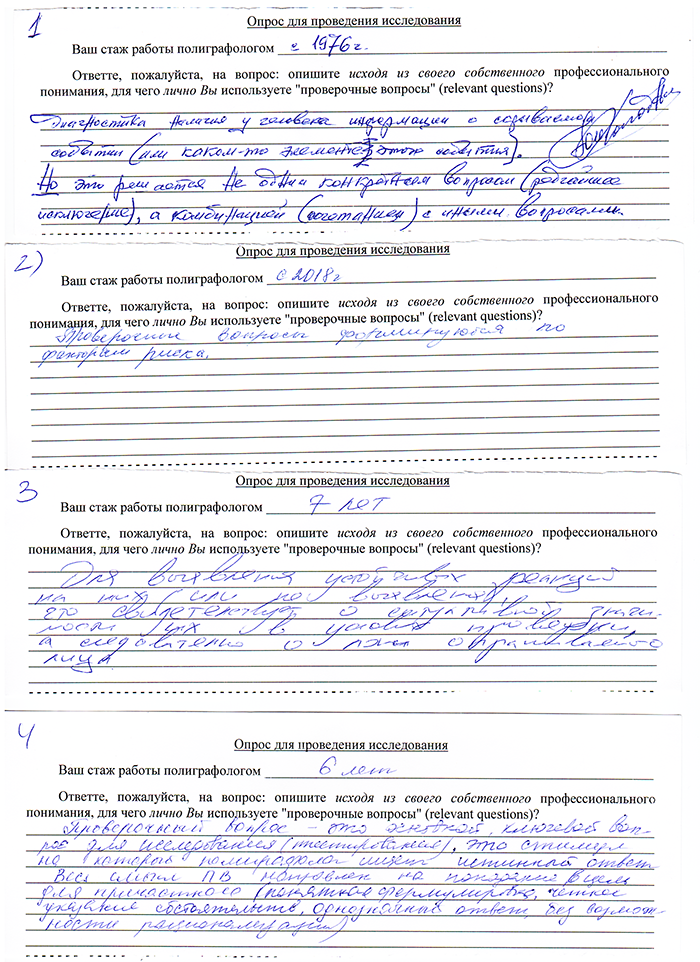 1
Опрос для проведения исследования
Ваш стаж работы полиграфологом с 1976 г.
Ответте, пожалуйста, на вопрос: опишите исходя из своего собственного профессионального
понимания, для чего лично Вы используете "проверочные вопросы" (relevant questions)?
Диагностика наличия у человека информации о
событии (или каком-то элементе этого события).
Но это решается не одним конкретным вопросом (редчайшее
исключение), а комбинацией (сочетанием) с иными вопросами.
2)
Опрос для проведения исследования
Ваш стаж работы полиграфологом с 2018 г
Ответте, пожалуйста, на вопрос: опишите исходя из своего собственного профессионального
понимания, для чего лично Вы используете "проверочные вопросы" (relevant questions)?
Проверочные вопросы формируются по
факторам риска.
3
Опрос для проведения исследования
Ваш стаж работы полиграфологом 7 лет
Ответте, пожалуйста, на вопрос: опишите исходя из своего собственного профессионального
понимания, для чего лично Вы используете "проверочные вопросы" (relevant questions)?
Для выявления устойчивых реакций
на них (или не выявления),
что свидетельствует о ситуативной значи-
мости их в условиях проверки,
а следовательно о лжи опрашиваемого
лица
4
Опрос для проведения исследования
Ваш стаж работы полиграфологом 6 лет
Ответте, пожалуйста, на вопрос: опишите исходя из своего собственного профессионального
понимания, для чего лично Вы используете "проверочные вопросы" (relevant questions)?
Проверочный вопрос – это основной, ключевой воп-
рос для исследования (тестирования), это стимул
на который полиграфолог ищет истинный ответ.
Весь смысл ПВ направлен на попадание в цель
для причастного (понятная формулировка, четкое
указание обстоятельств, однозначный ответ, без возмож-
ности рационализации)